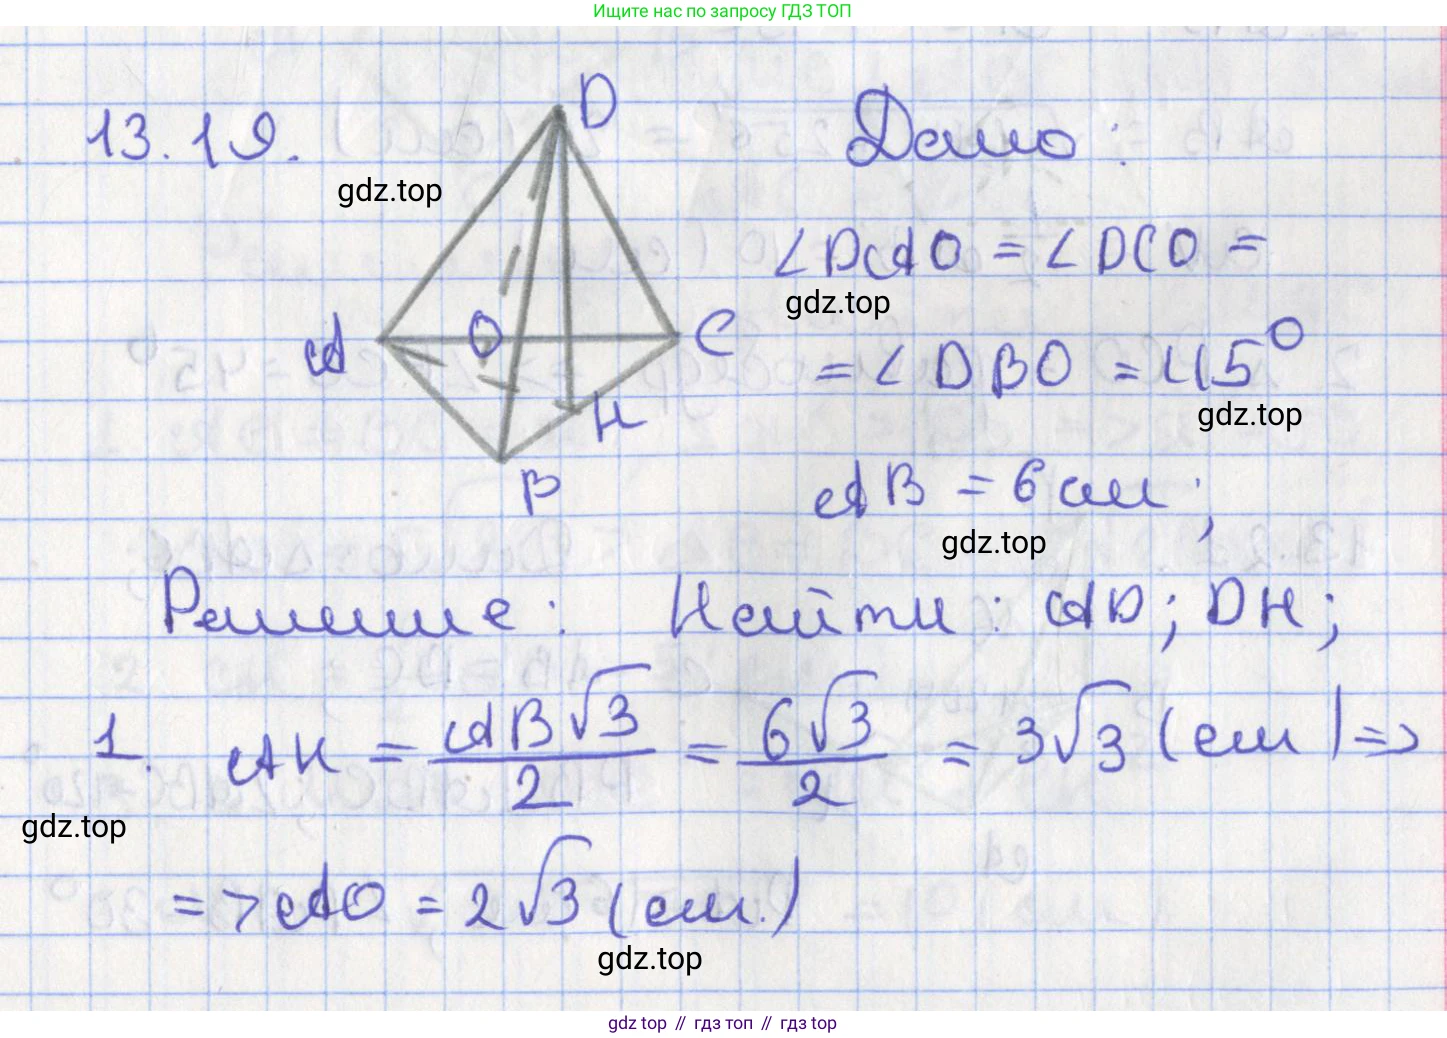 Ищите нас по запросу ГДЗ ТОП
13.19.
D
Дано:
gdz.top
∠DAO = ∠DCO =
gdz.top
A
O
C
= ∠DBO = 45°
gdz.top
H
B
AB = 6 см;
gdz.top
Решение: Найти: AD; DH;
1. AH = AB√3/2 = 6√3/2 = 3√3 (см) =>
gdz.top
=> AO = 2√3 (см.)
gdz.top
gdz top // гдз топ // гдз top